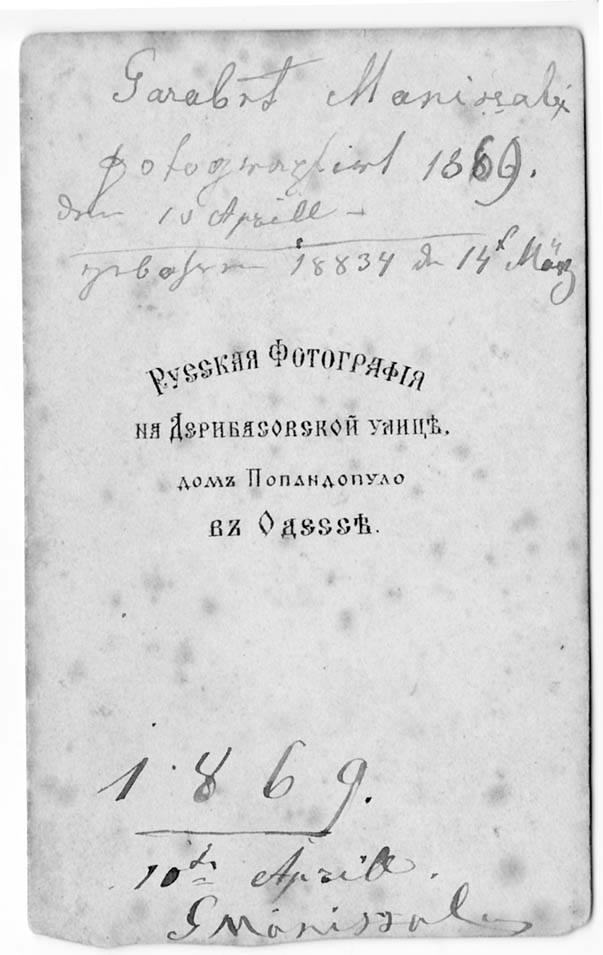 Garabet Manissali
photographirt 1869.
den 10 Aprill –
geboren 18834 den 14t März
Русская Фотографія
на Дерибасовской улицѣ.
домъ Попандопуло
въ Одессѣ.
1869.
10tn Aprill.
GManissali